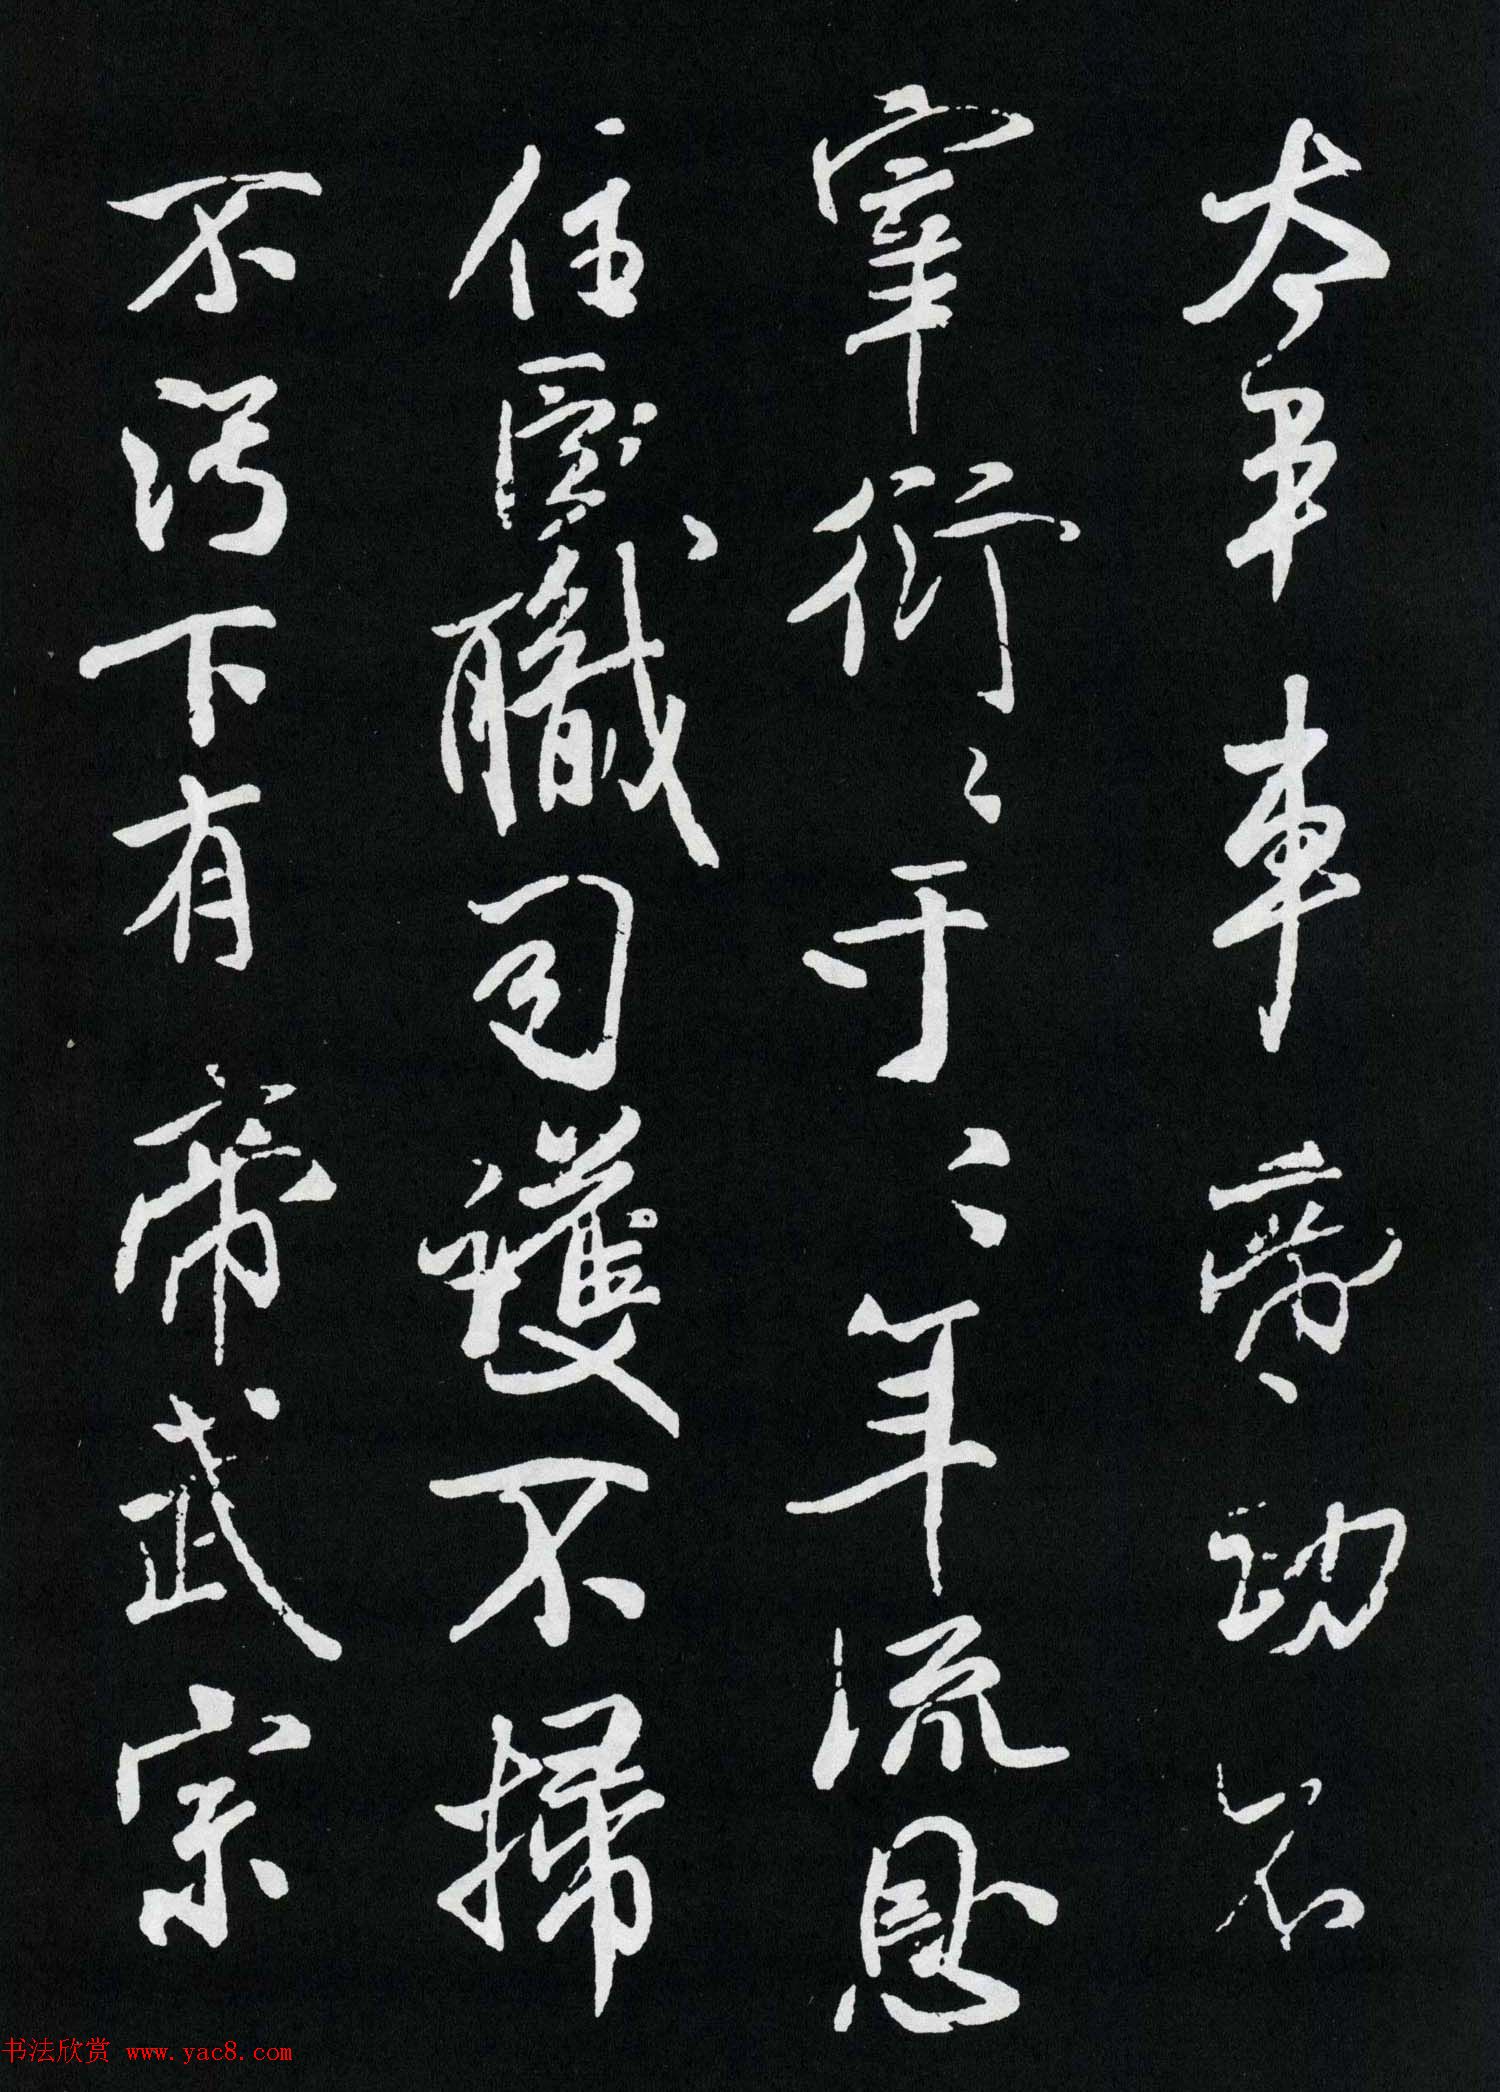 太平車 功名
宰衍〻于〻年流恩
住厥職司護不掃
不污下有帝武宗
书法欣赏 www.yac8.com